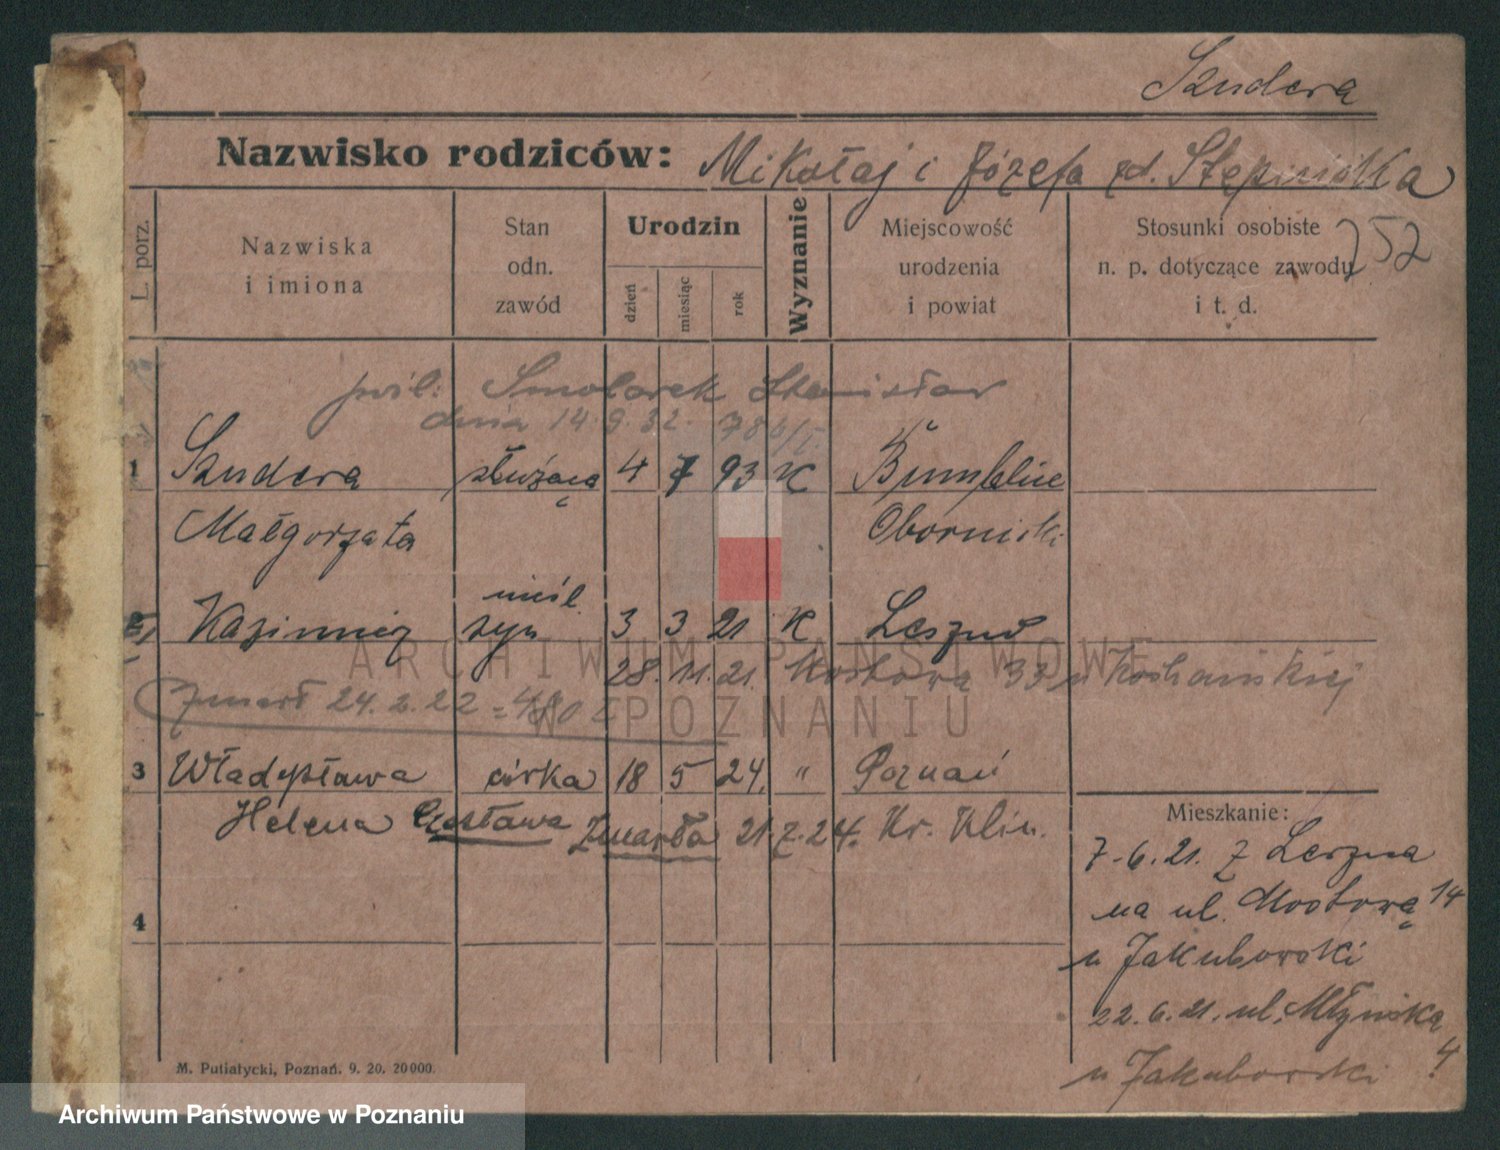 Szudera
Nazwisko rodziców: Mikołaj i Józefa zd. Stępniówka
252
L. porz.
Nazwiska i imiona
Stan odn. zawód
Urodzin
dzień
miesiąc
rok
Wyznanie
Miejscowość urodzenia i powiat
Stosunki osobiste n. p. dotyczące zawodu i t. d.
Smolarek Stanisław
dnia 14.9.32.
1 Szudera służąca 4 7 93 K
Małgorzata Obornicki
nieśl.
2 Kazimierz syn 3 3 21 K Leszno
28. 11. 21. Mostowa 33 u Kochańskiej
Zmarł 24.2.22
3 Władysława córka 18 5 24. " Poznań
Helena Czesława Zmarła 21.7.24. Kr. Klin.
4
Mieszkanie:
7.6.21. z Leszna
na ul. Mostową 14
u Jakubowski
22.6.21. ul. Młyńska 4
u Jakubowski
M. Putiatycki, Poznań. 9. 20. 20000.
ARCHIWUM PAŃSTWOWE
W POZNANIU
Archiwum Państwowe w Poznaniu